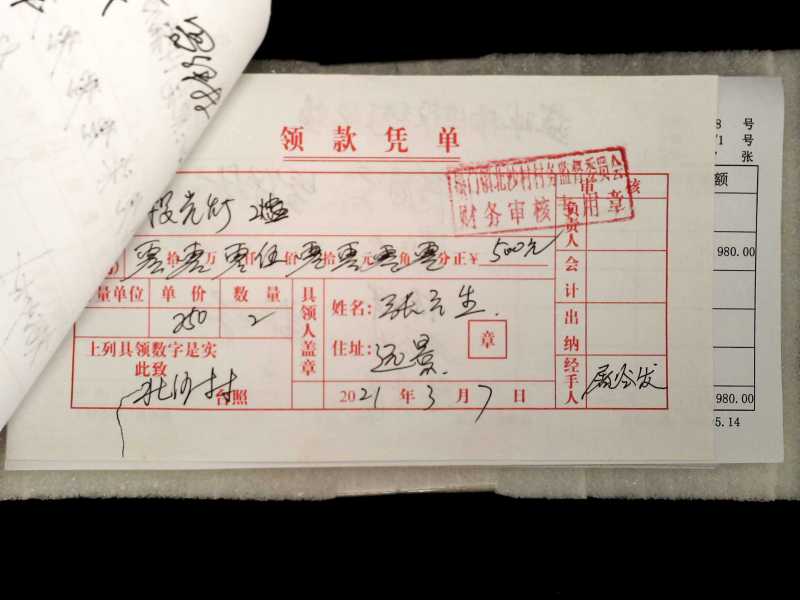 领款凭单
财务审核专用章
审核
投光灯 2盏
零拾零万零仟伍佰零拾零元零角零分正¥500元
量单位 单价 数量
250 2
上列具领数字是实
此致
北沙村 台照
具领人盖章
姓名:
住址: 远景
章
2021年3月7日
负责人
会计
出纳
经手人
8 号
/1 号
张
额
980.00
980.00
5.14